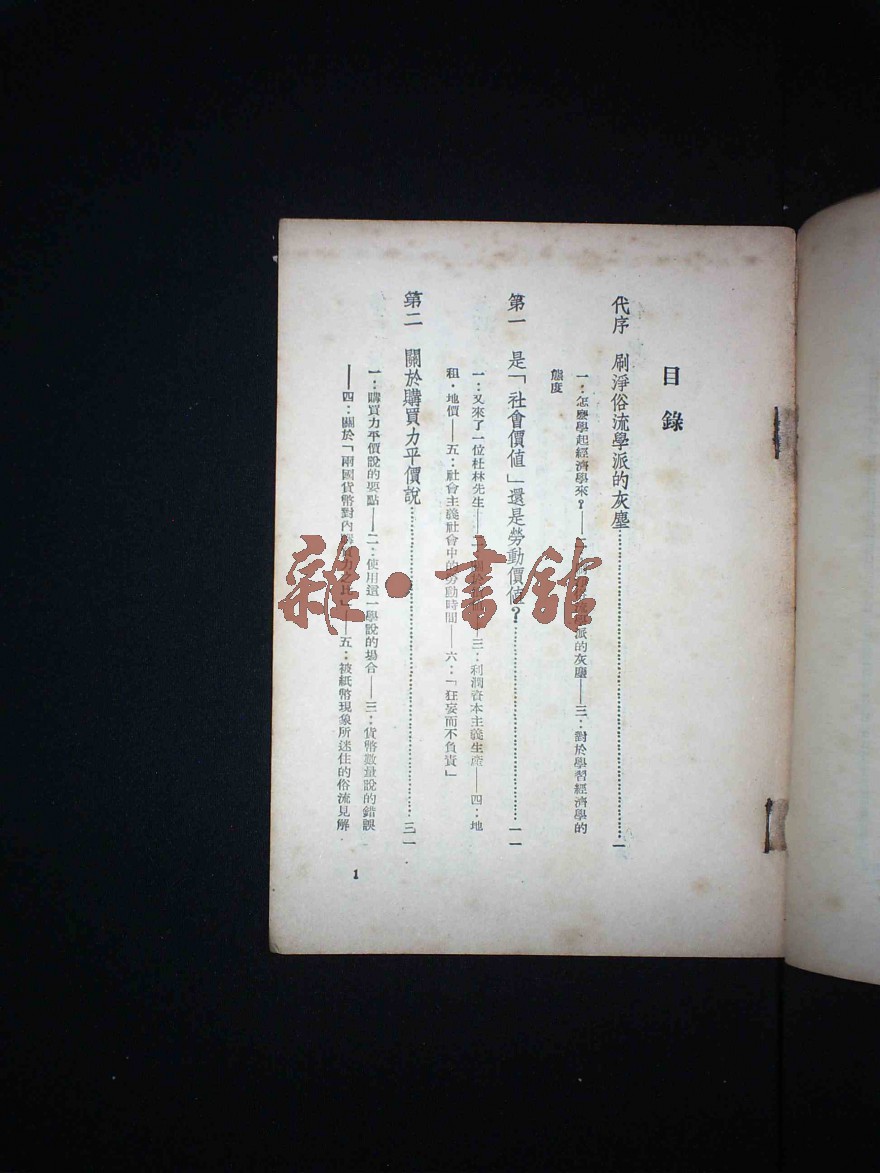 目錄
代序 刷淨俗流學派的灰塵……一
一：怎麼學起經濟學來？——二 派的灰塵——三：對於學習經濟學的
態度
第一 是「社會價值」還是勞動價值？……一一
一：又來了一位杜林先生——二 三：利潤資本主義生產——四：地
租・地價——五：社會主義社會中的勞動時間——六：「狂妄而不負責」
第二 關於購買力平價說……三一
一：購買力平價說的要點——二：使用這一學說的場合——三：貨幣數量說的錯誤
——四：關於「兩國貨幣對內購買力之比」——五：被紙幣現象所迷住的俗流見解
1
雜・書館